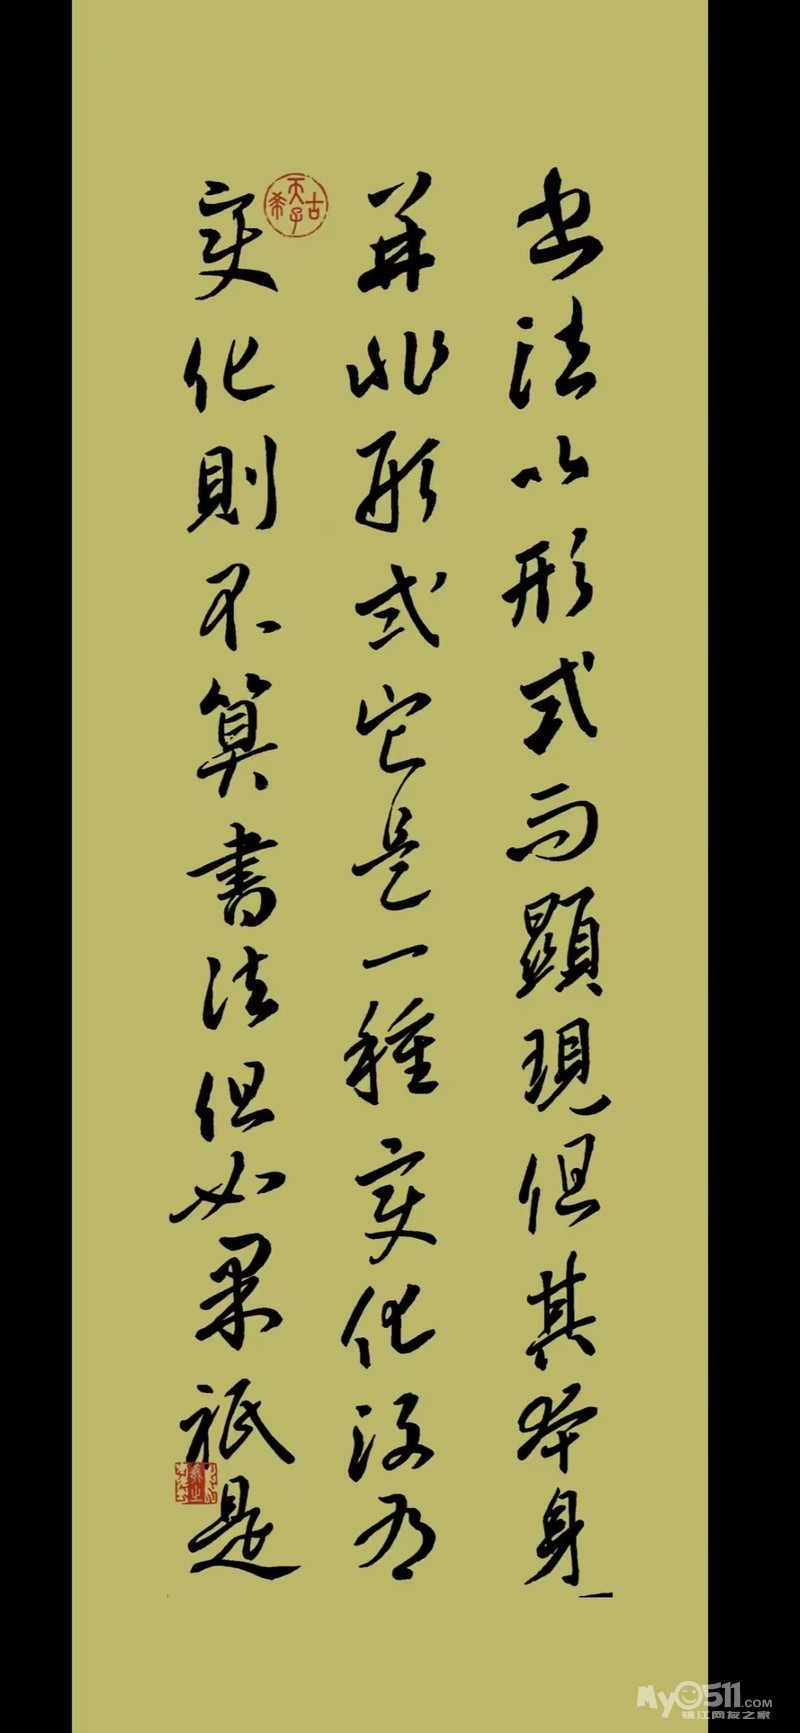 书法以形式而顯現但其本身
并非形式它是一種变化没有
变化則不算書法但如果祇是
古希天子
My0511.COM
镇江网友之家